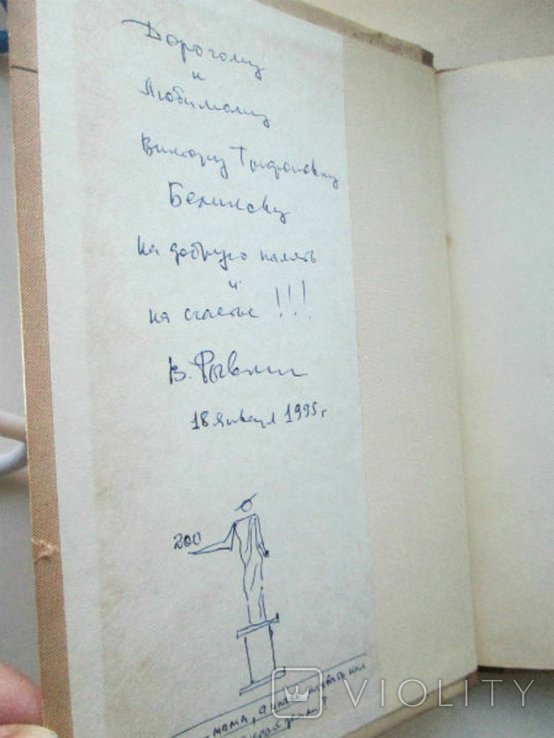 Дорогому
и
Любимому
Виктору Трифоновичу
Беликову
на добрую память
и
на счастье !!!
В.
18 января 1995 г
200
мама, а
VIOLITY